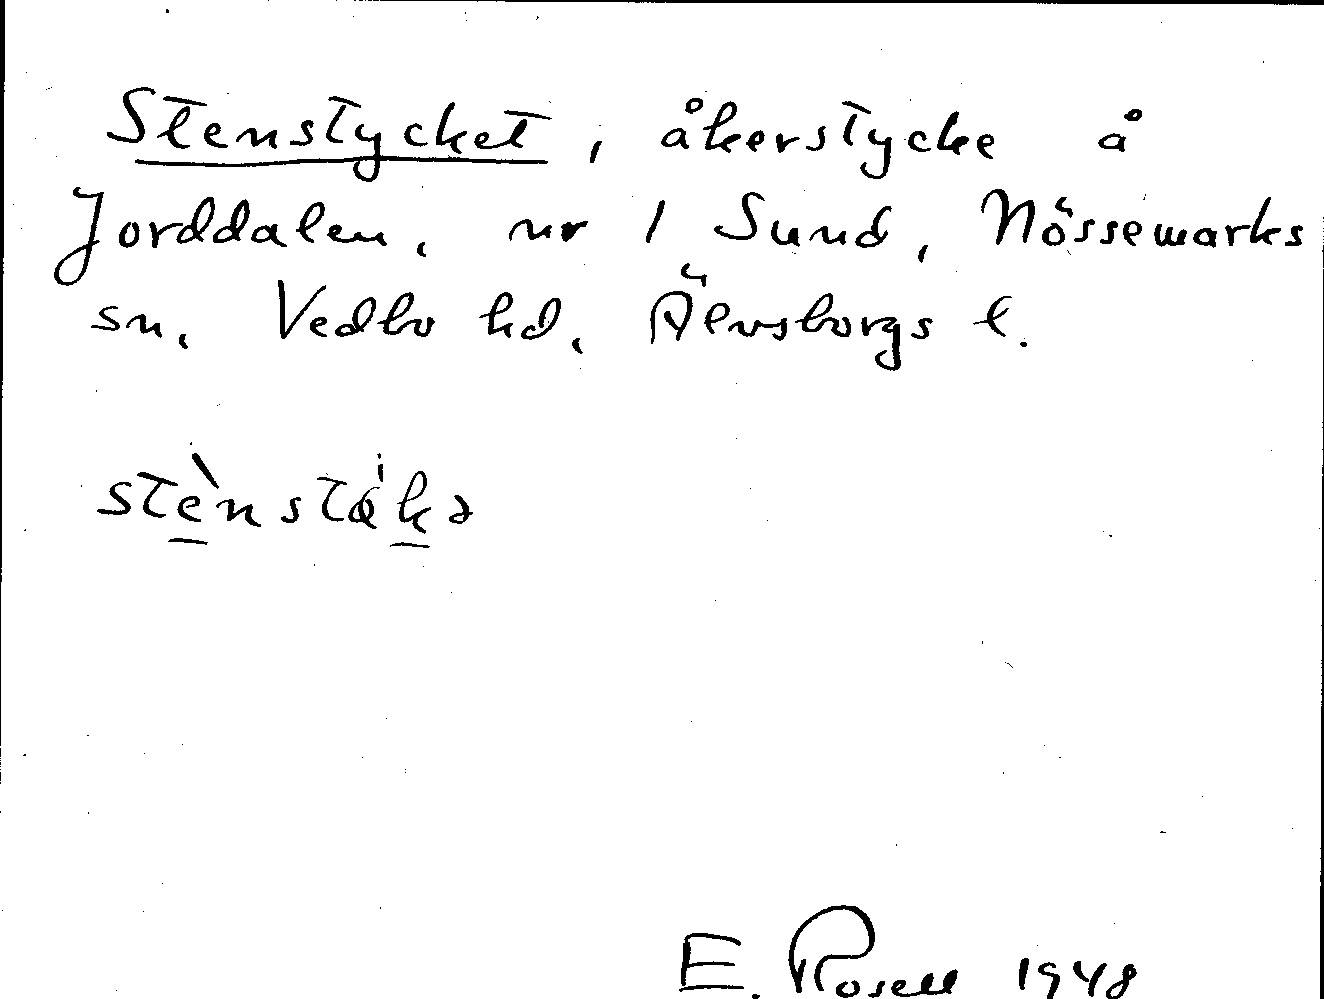 Stenstycket, åkerstycke å
Jorddalen, nr 1 Sund, Nössemarks
sn, Vedbo hd, Älvsborgs l.
stènsták̠ə
E. Rosell 1948